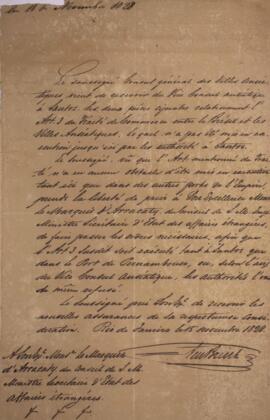 en 18 Novembro 1828
Le soussigné Consul général des Villes Anséa-
tiques vient de recevoir du Vice Consul anséatique
à Santos, les deux pièces ajoutées relativement à l'
Art. 3 du Traité de Commerce entre le Brésil et les
Villes Anséatiques, lequel n'a pas été mis en exé-
cution jusqu'ici par les authorités à Santos.
Le Soussigné, vu que l'Art. mentionné du Trai-
té n'a eu aucun obstacle d'être mis en exécution
tant ici que dans des autres ports de l'Empire,
prend la liberté de prier à Son Excellence Mons.
le Marquis d'Aracaty, du Conseil de S. M. Imp.
Ministre Secrétaire d'Etat des affaires étrangères,
de faire passer les ordres nécessaires, afin que
l'Art. 3 susdit soit exécuté tant à Santos que
dans le Port de Pernambuco, où, selon l'avis
du Vice Consul Anséatique, les authorités l'ont
de même refusé.
Le Soussigné prie Son Exc. de recevoir les
nouvelles assurances de la respectueuse consi-
dération. Rio de Janeiro le 15 novembre 1828.
A Son Exc. Mons. le Marquis
d'Aracaty du Conseil de S. M.
Ministre Secrétaire d'Etat des
affaires étrangères.